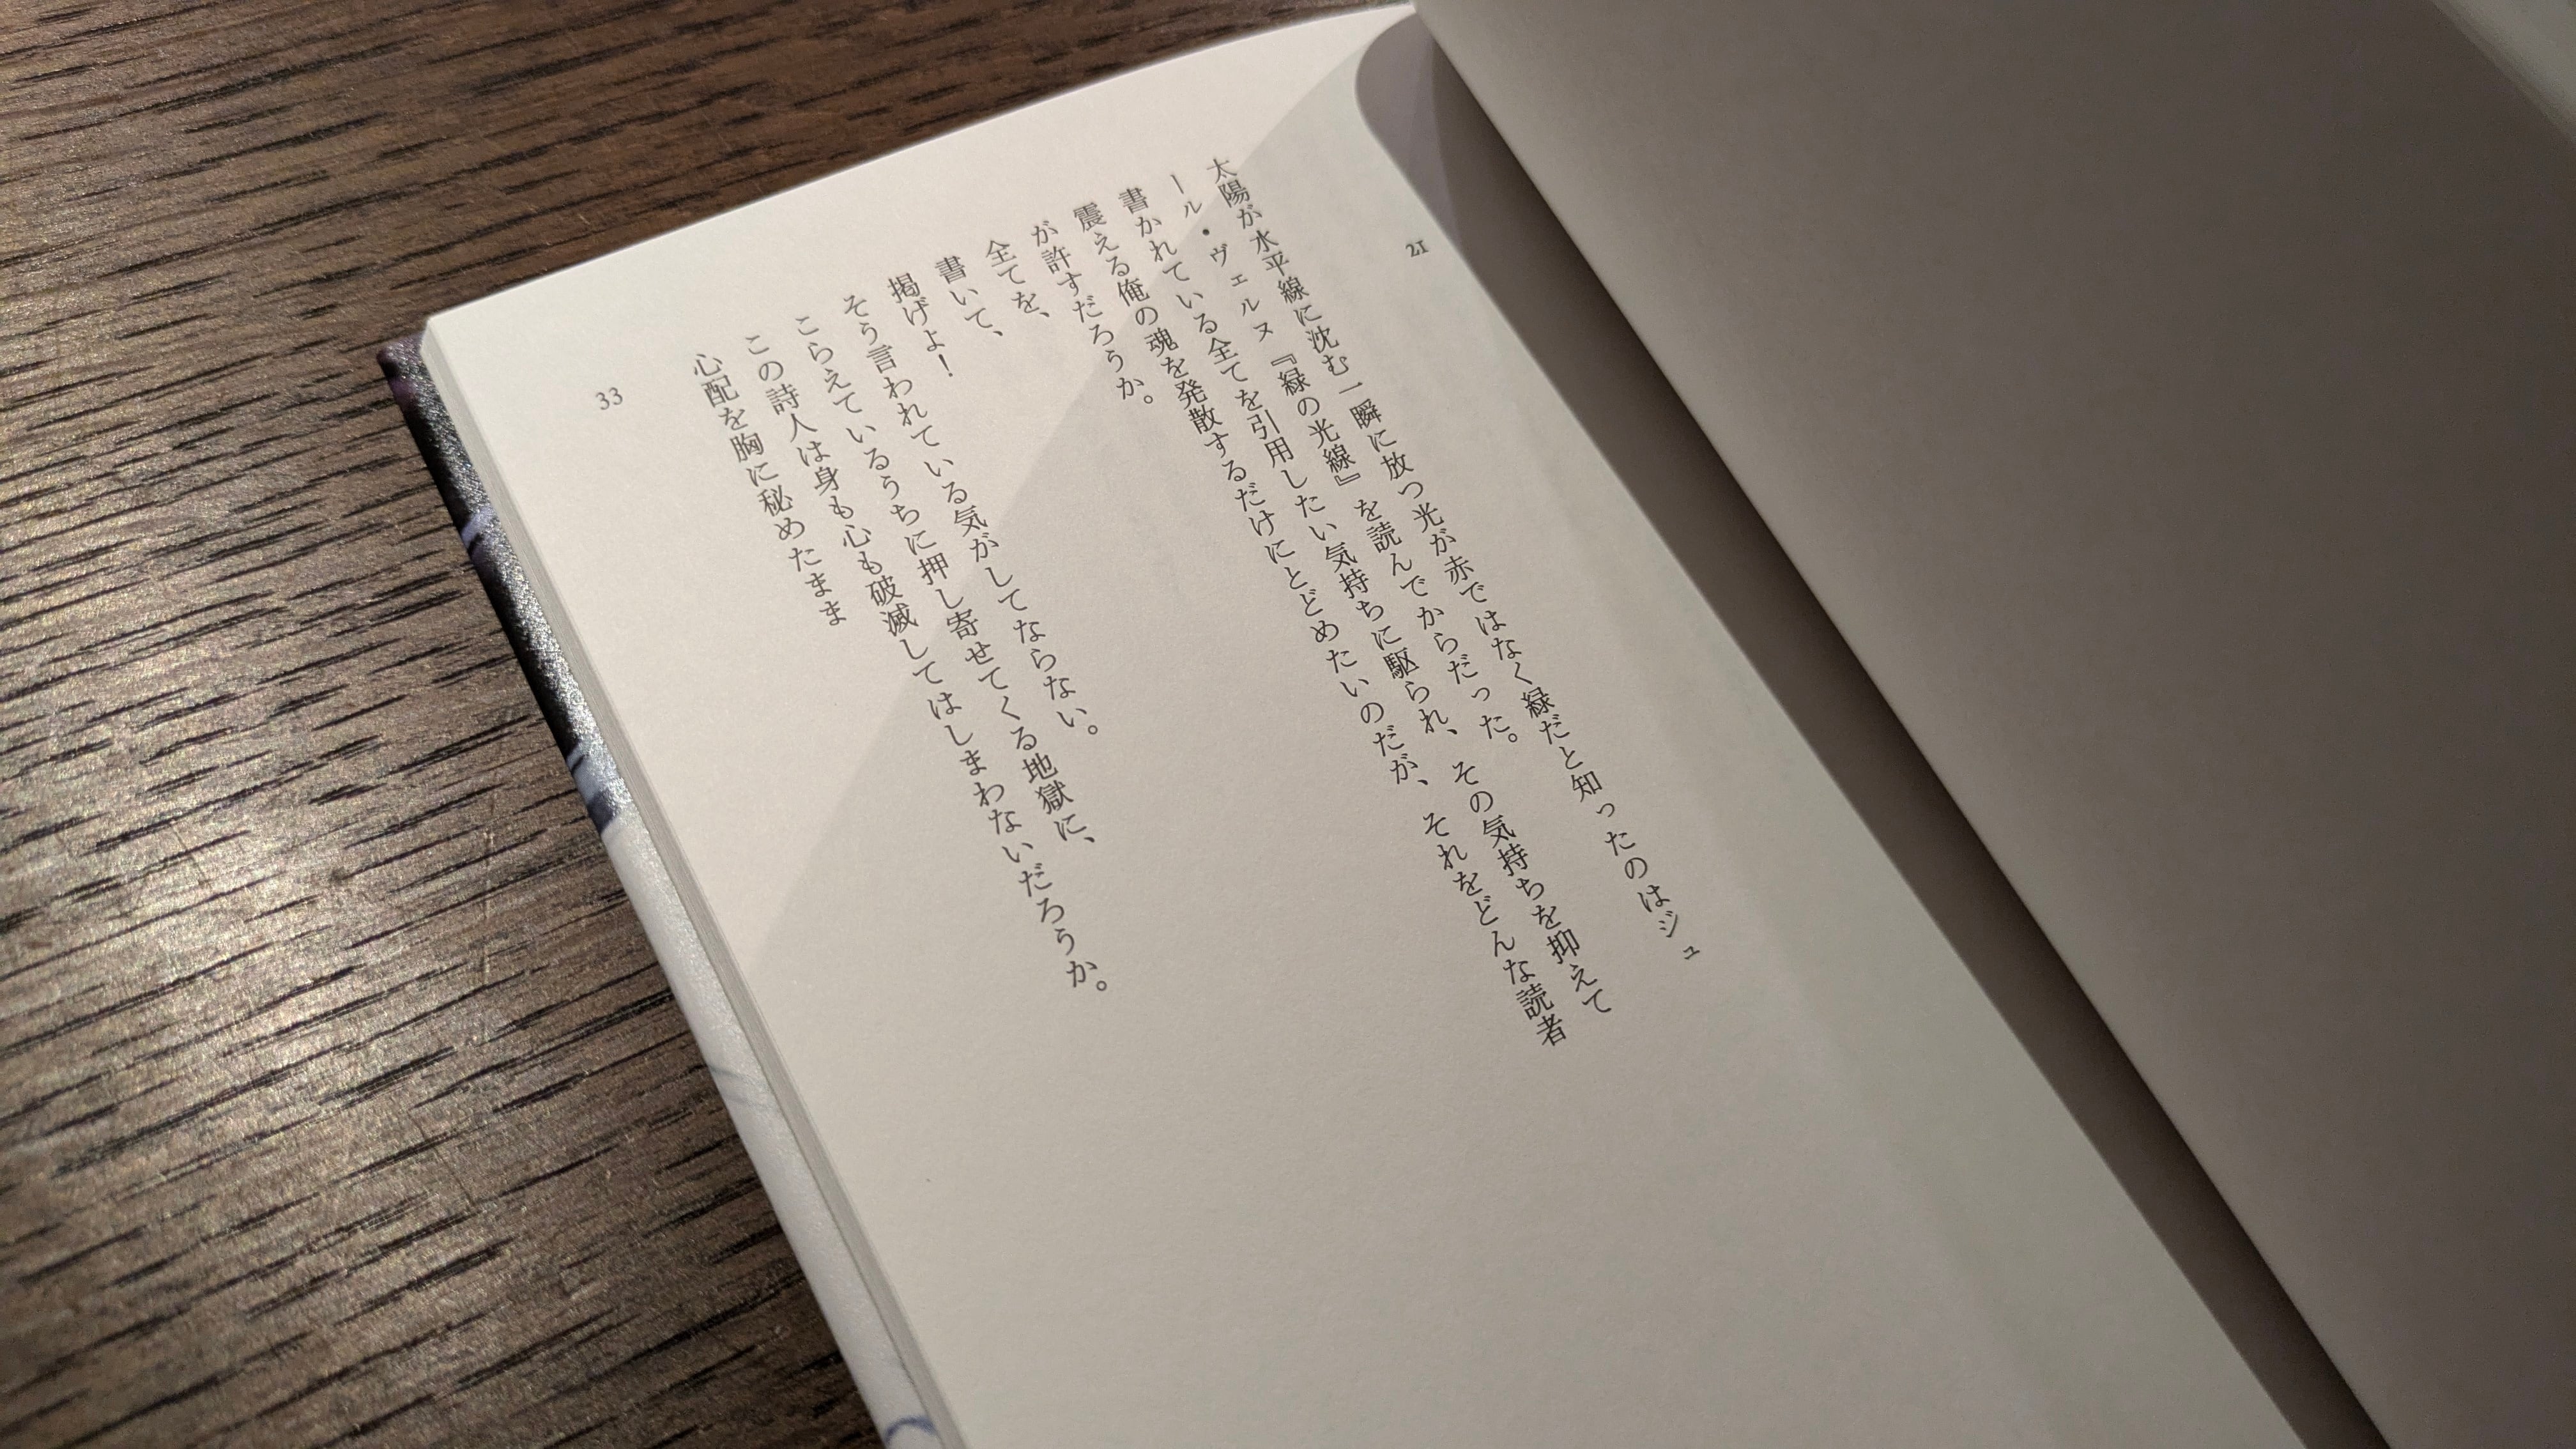 21
太陽が水平線に沈む一瞬に放つ光が赤ではなく緑だと知ったのはジュ
ール・ヴェルヌ『緑の光線』を読んでからだった。
書かれている全てを引用したい気持ちに駆られ、その気持ちを抑えて
震える俺の魂を発散するだけにとどめたいのだが、それをどんな読者
が許すだろうか。
全てを、
書いて、
掲げよ！
そう言われている気がしてならない。
こらえているうちに押し寄せてくる地獄に、
この詩人は身も心も破滅してはしまわないだろうか。
心配を胸に秘めたまま
33